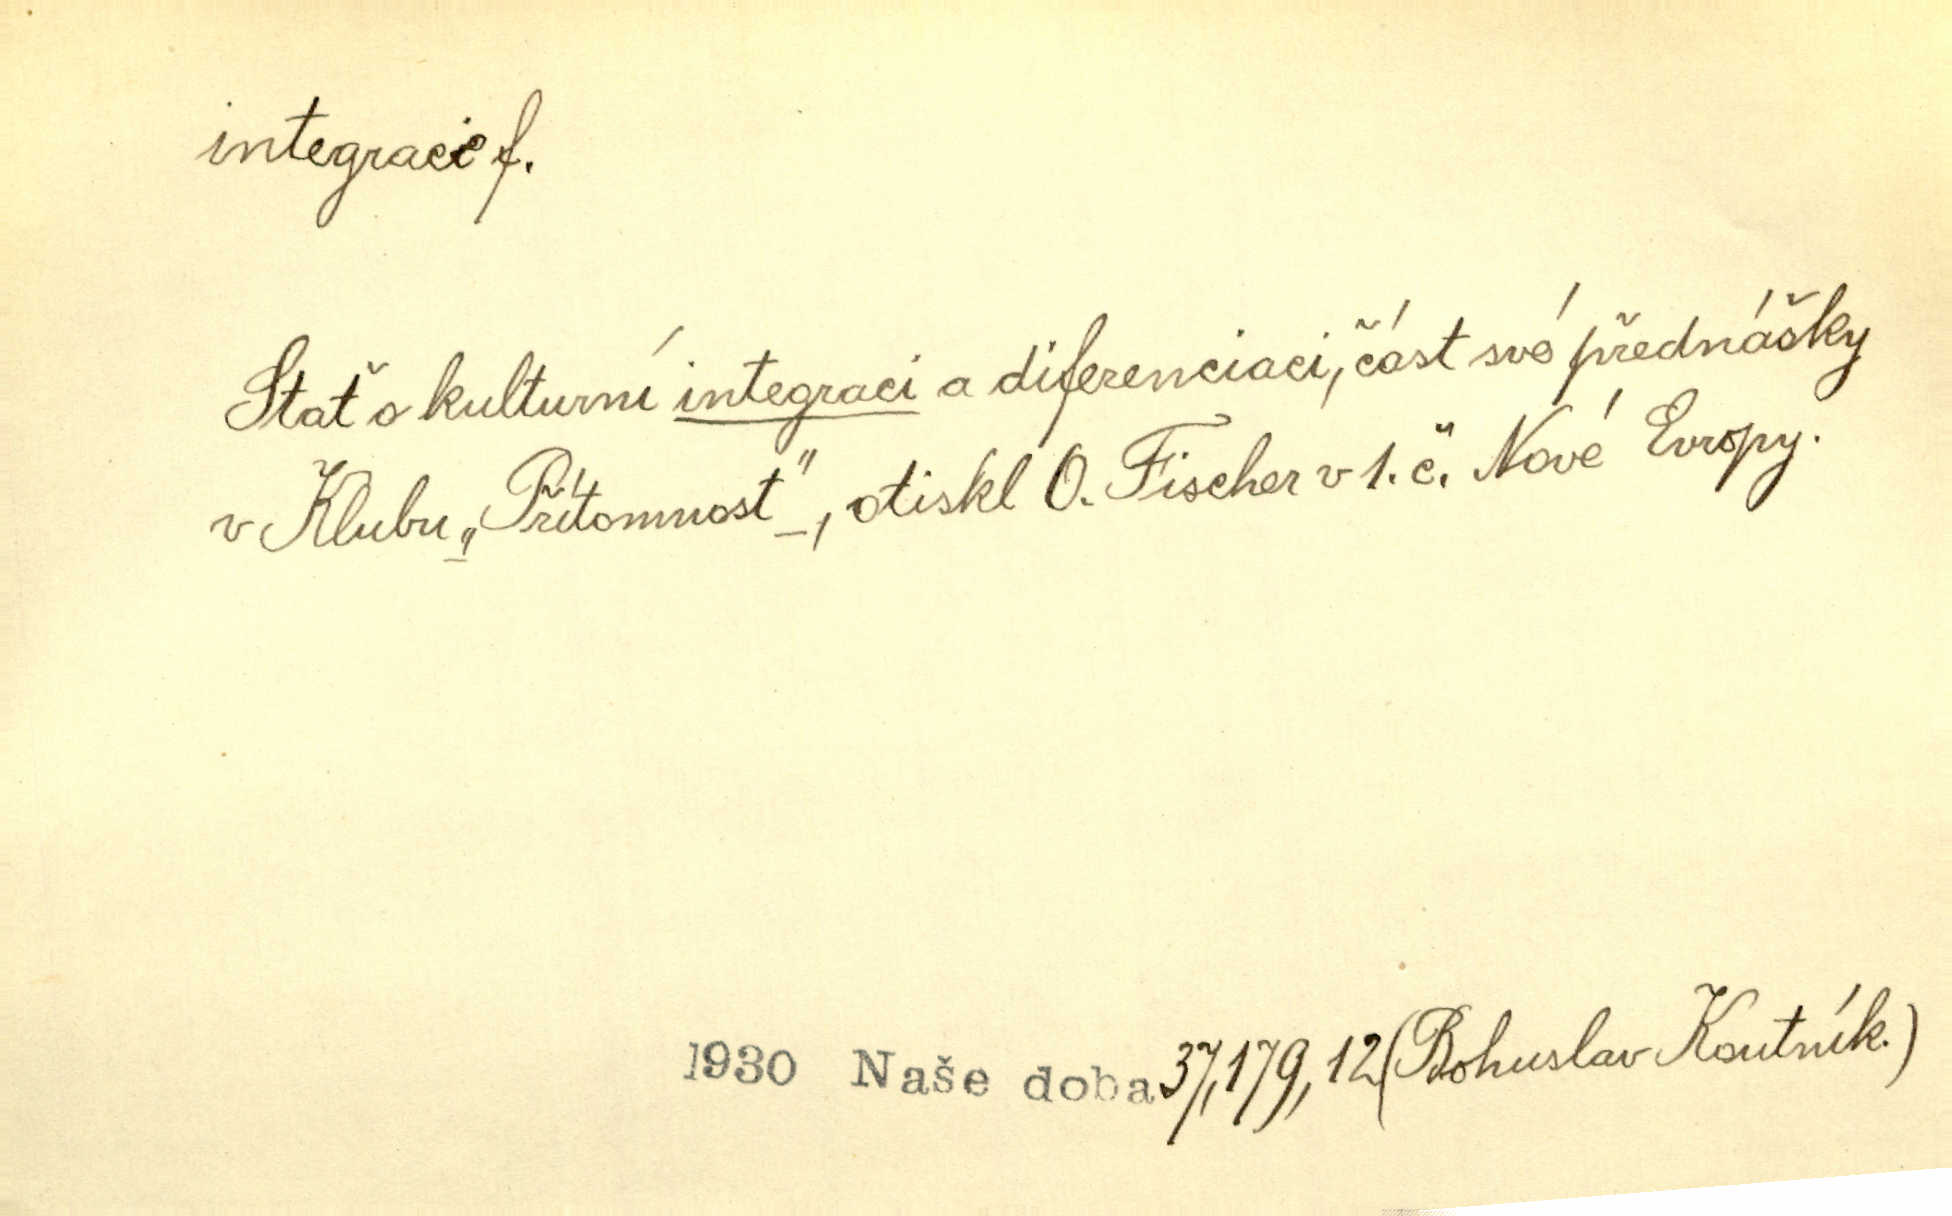 integrace f.
Stať o kulturní integraci a diferenciaci, část své přednášky
v Klubu „Přítomnost", otiskl O. Fischer v 1. č. Nové Evropy.
1930 Naše doba 37, 179, 12 (Bohuslav Koutník.)